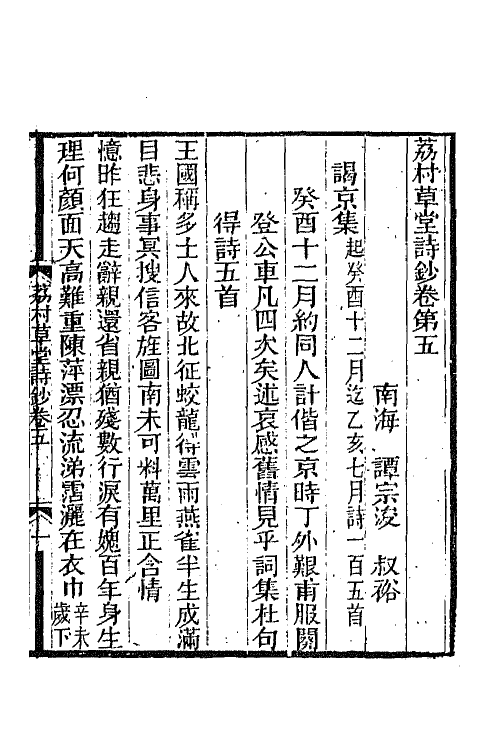 荔村草堂詩鈔卷第五
南海 譚宗浚 叔裕
謁京集起癸酉十二月迄乙亥七月詩一百五首
癸酉十二月約同人計偕之京時丁外艱甫服闋
登公車凡四次矣述哀感舊情見乎詞集杜句
得詩五首
王國稱多士人來故北征蛟龍得雲雨燕雀半生成滿
目悲身事冥搜信客旌圖南未可料萬里正含情
憶昨狂趨走辭親還省親猶殘數行淚有媿百年身生
理何顏面天高難重陳萍漂忍流涕霑灑在衣巾辛未
歲下
荔村草堂詩鈔卷五
一